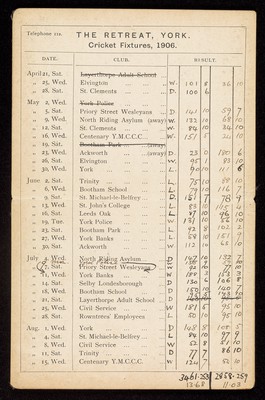 Telephone 112.
THE RETREAT, YORK.
Cricket Fixtures, 1906.
DATE. CLUB. RESULT.
April 21, Sat. Layerthorpe Adult School
„ 25, Wed. Elvington W. 101 8
„ 28, Sat. St. Clements D. 100 6
May 2, Wed. York Police
„ 5, Sat. Priory Street Wesleyans D. 141 10 59 7
„ 9, Wed. North Riding Asylum (away) W. 132 10 68 10
„ 12, Sat. St. Clements W. 84 10 34 10
„ 16, Wed. Centenary Y.M.C.C. W.
„ 19, Sat. Bootham Park (away)
„ 23, Wed. Ackworth (away) D. 23 0 180 6
„ 26, Sat. Elvington W. 95 83 10
„ 30, Wed. York L. 90 10 111 6
June 2, Sat. Trinity L. 10 88 10
„ 6, Wed. Bootham School L. 79 10 116 7
„ 9, Sat. St. Michael-le-Belfrey D. 151 7 78 9
„ 13, Wed. St. John's College L. 10
„ 16, Sat. Leeds Oak L. 87 10 96 10
„ 19, Tue. York Police W. 131 10 10
„ 23, Sat. Bootham Park L. 93 8 102 2
„ 27, Wed. York Banks L. 10 9
„ 30, Sat. Ackworth W. 112 10 10
July 4, Wed. North Riding Asylum D. 147 10 132 7
„ 7, Sat. Priory Street Wesleyans W. 92 10 77 10
„ 11, Wed. York Banks W. 10
„ 14, Sat. Selby Londesborough D. 130 6 106 8
„ 18, Wed. Bootham School
„ 21, Sat. Layerthorpe Adult School
„ 25, Wed. Civil Service W. 181 6 95 10
„ 28, Sat. Rowntrees' Employees L. 50 10 95 10
Aug. 1, Wed. York D. 148 5 108 5
„ 4, Sat. St. Michael-le-Belfrey L. 84 10 97 9
„ 8, Wed. Civil Service W. 52 8 51 10
„ 11, Sat. Trinity D. 77 86 10
„ 15, Wed. Centenary Y.M.C.C. W. 124 7 52 10
3461-253 2858-259
13.68 11.03